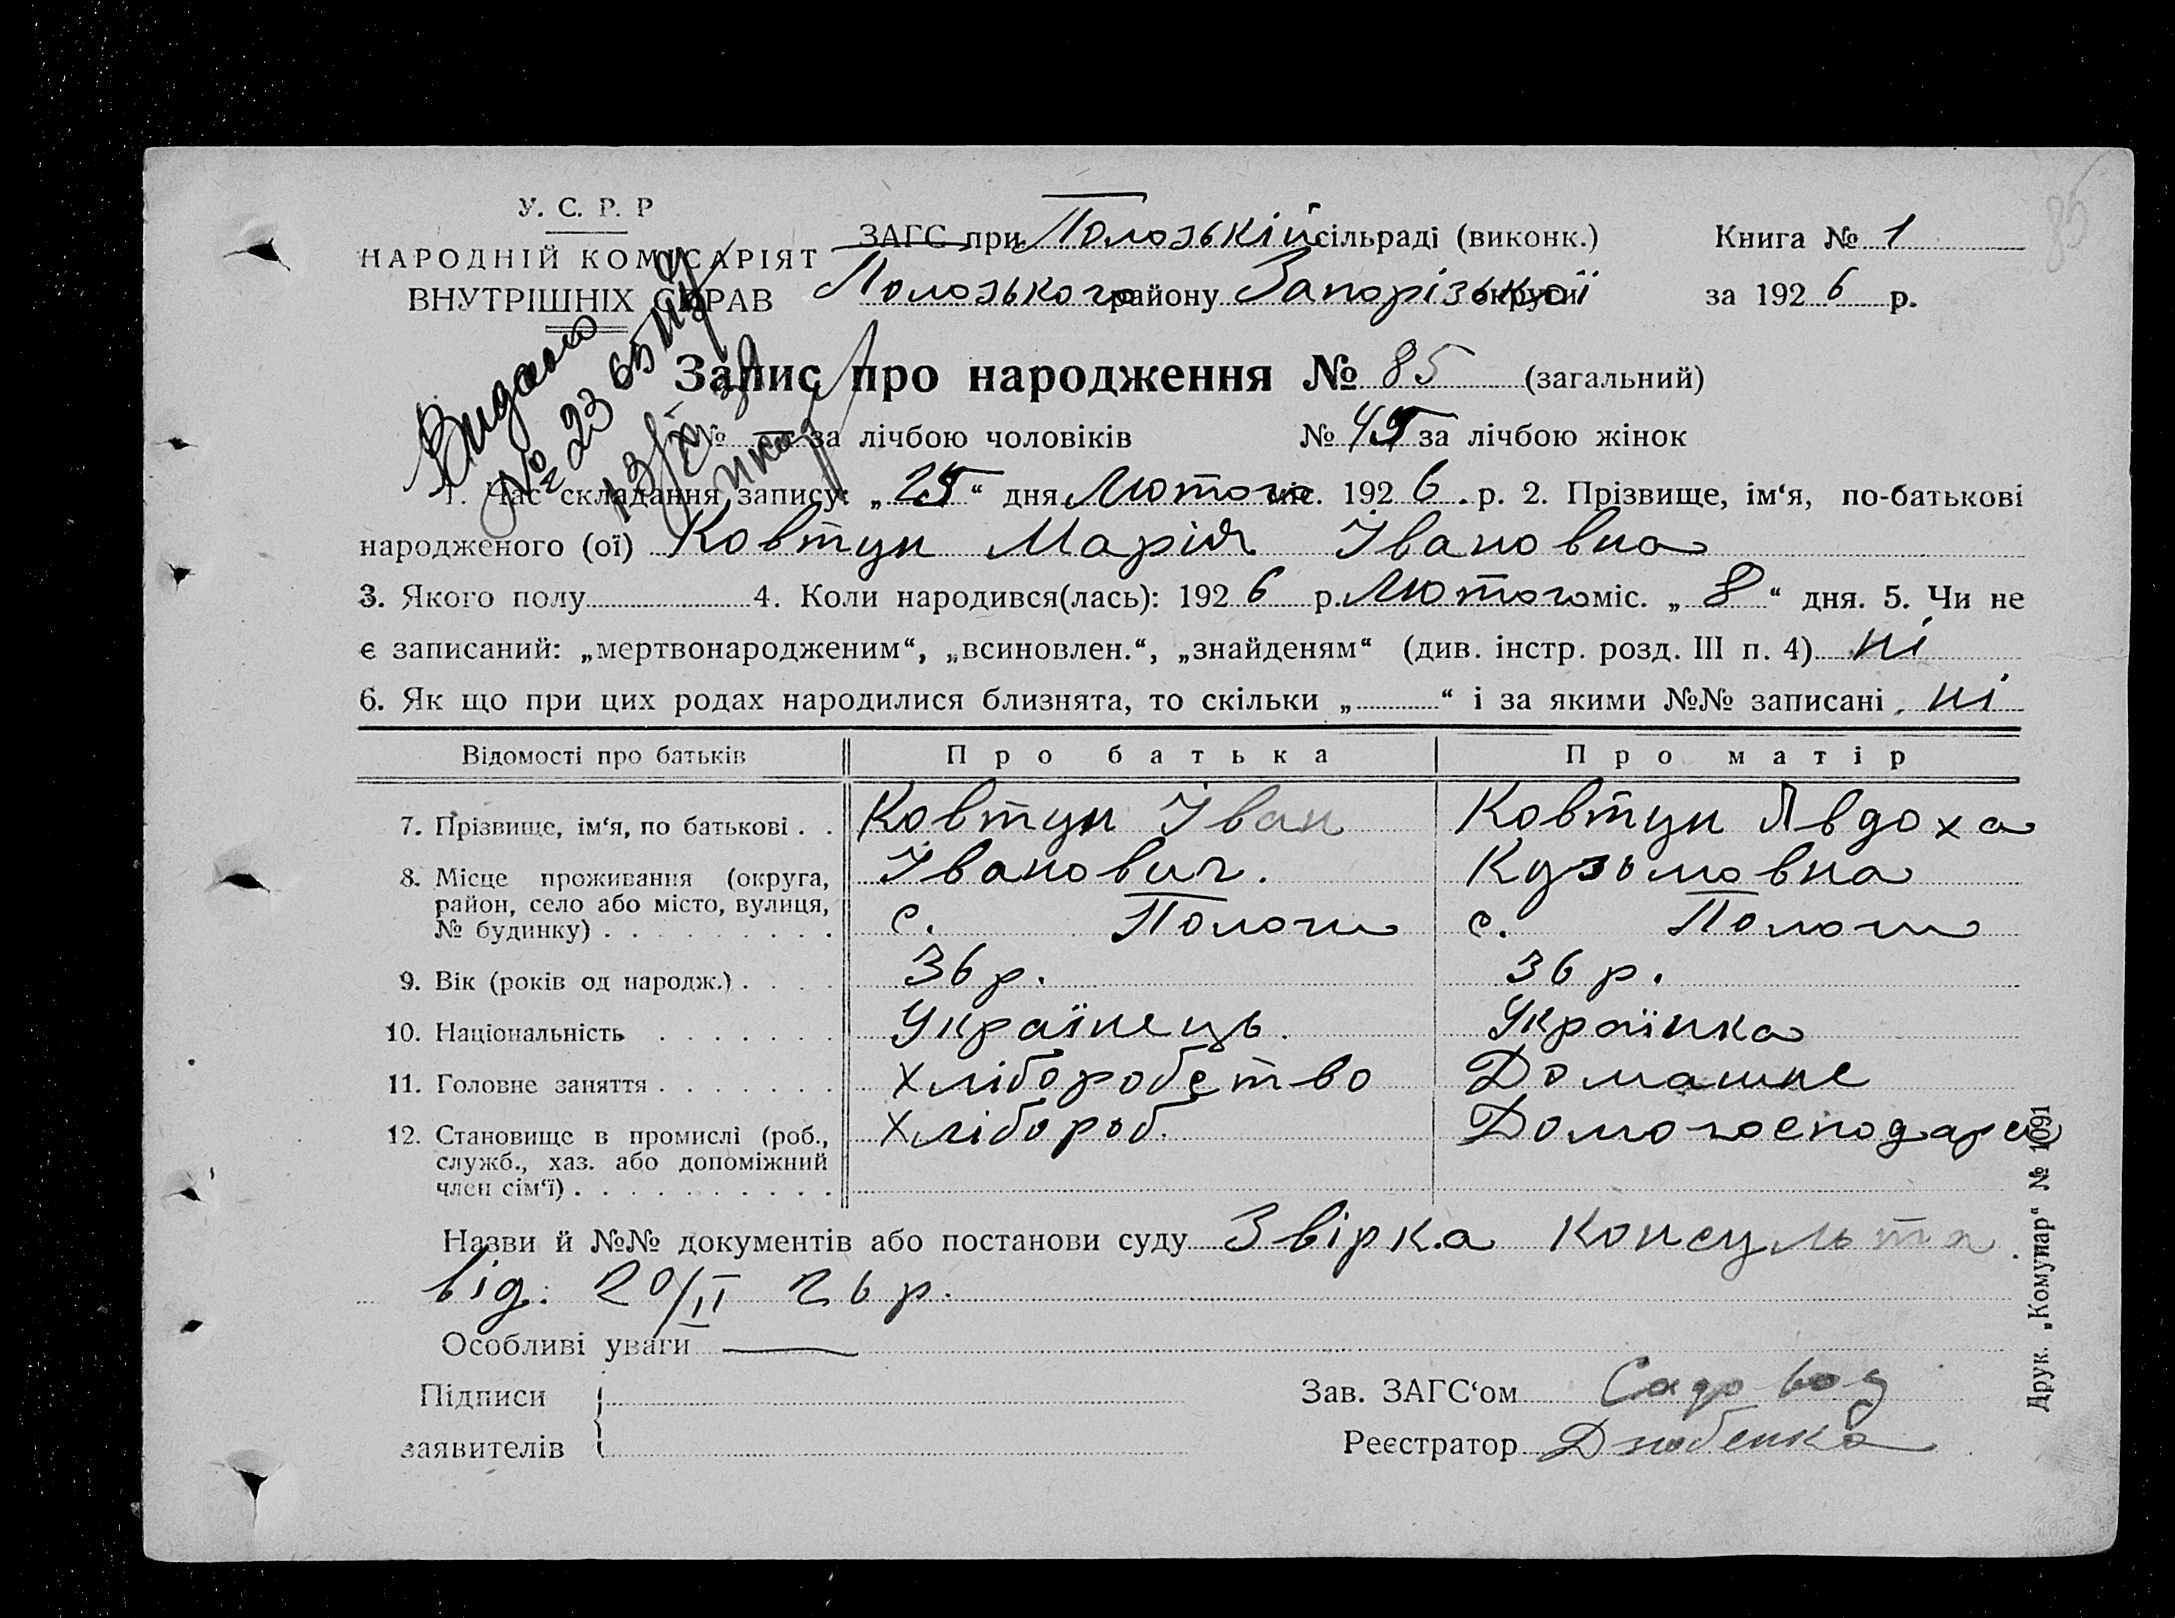 У. С. Р. Р
НАРОДНІЙ КОМІСАРІЯТ
ВНУТРІШНІХ СПРАВ
ЗАГС при Полозькій сільраді (виконк.)
Полозького району Запорізької округи
Книга № 1
за 1926 р.
85
Видано
№
Запис про народження № 85 (загальний)
№ — за лічбою чоловіків № 45 за лічбою жінок
1. Час складання запису: „25“ дня Лютого міс. 1926 р. 2. Прізвище, ім‘я, по-батькові
народженого (ої) Ковтун Марія Івановна
3. Якого полу 4. Коли народився(лась): 1926 р. Лютого міс. „8“ дня. 5. Чи не
є записаний: „мертвонародженим“, „всиновлен.“, „знайденям“ (див. інстр. розд. III п. 4) ні
6. Як що при цих родах народилися близнята, то скільки „ “ і за якими №№ записані ні
Відомості про батьків Про батька Про матір
7. Прізвище, ім‘я, по батькові . . Ковтун Іван Ковтун Явдоха
Іванович. Кузьмовна
8. Місце проживання (округа,
район, село або місто, вулиця,
№ будинку) . . . . . . . . . с. Пологи с. Пологи
9. Вік (років од народж.) . . . . 36 р. 36 р.
10. Національність . . . . . . . Українець. Українка
11. Головне заняття . . . . . . . Хліборобство Домашнє
12. Становище в промислі (роб., Хлібороб. Домогосподарка
служб., хаз. або допоміжний
член сім‘ї) . . . . . . . . . .
Назви й №№ документів або постанови суду Звірка Консульта
від. 20/II 26 р.
Особливі уваги —
Підписи
заявителів
Зав. ЗАГС‘ом
Реєстратор
Друк. „Комунар“ № 1091